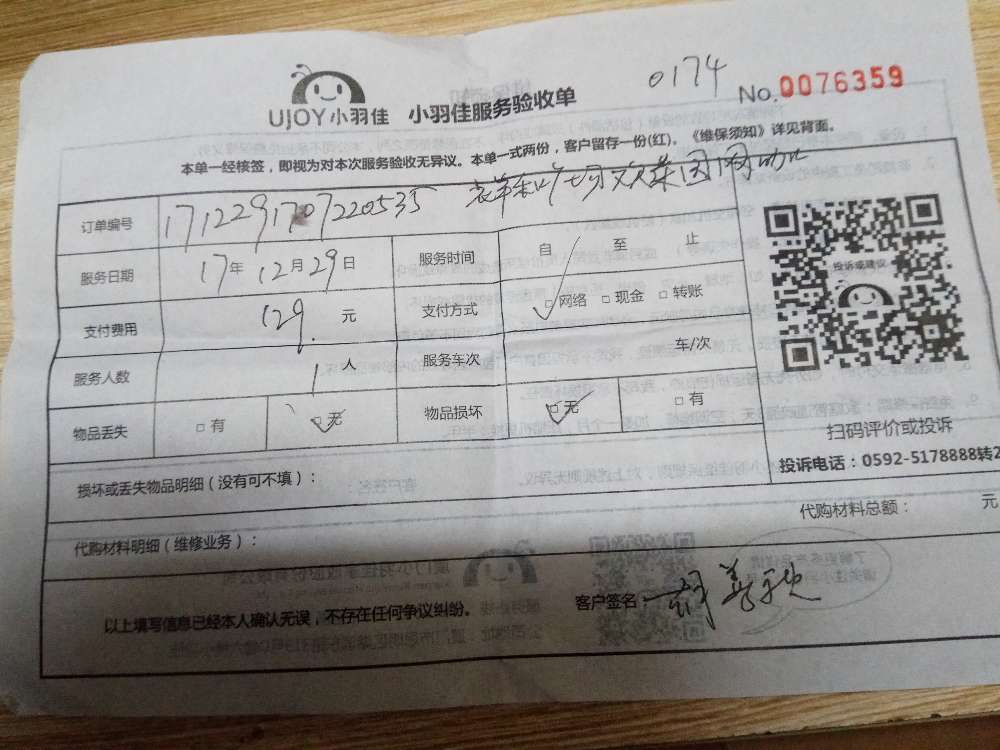 0174
No.0076359
UJOY小羽佳 小羽佳服务验收单
本单一经核签，即视为对本次服务验收无异议。本单一式两份，客户留存一份(红)。《维保须知》详见背面。
订单编号 171229170722 0535
服务日期 17年12月29日 服务时间 自 至 止
支付费用 129. 元 支付方式 □网络 □现金 □转账
服务人数 1人 服务车次 车/次
物品丢失 □有 □无 物品损坏 □无 □有
投诉或建议
扫码评价或投诉
投诉电话：0592-5178888转2
损坏或丢失物品明细（没有可不填）：
代购材料明细（维修业务）： 代购材料总额： 元
以上填写信息已经本人确认无误，不存在任何争议纠纷。 客户签名：